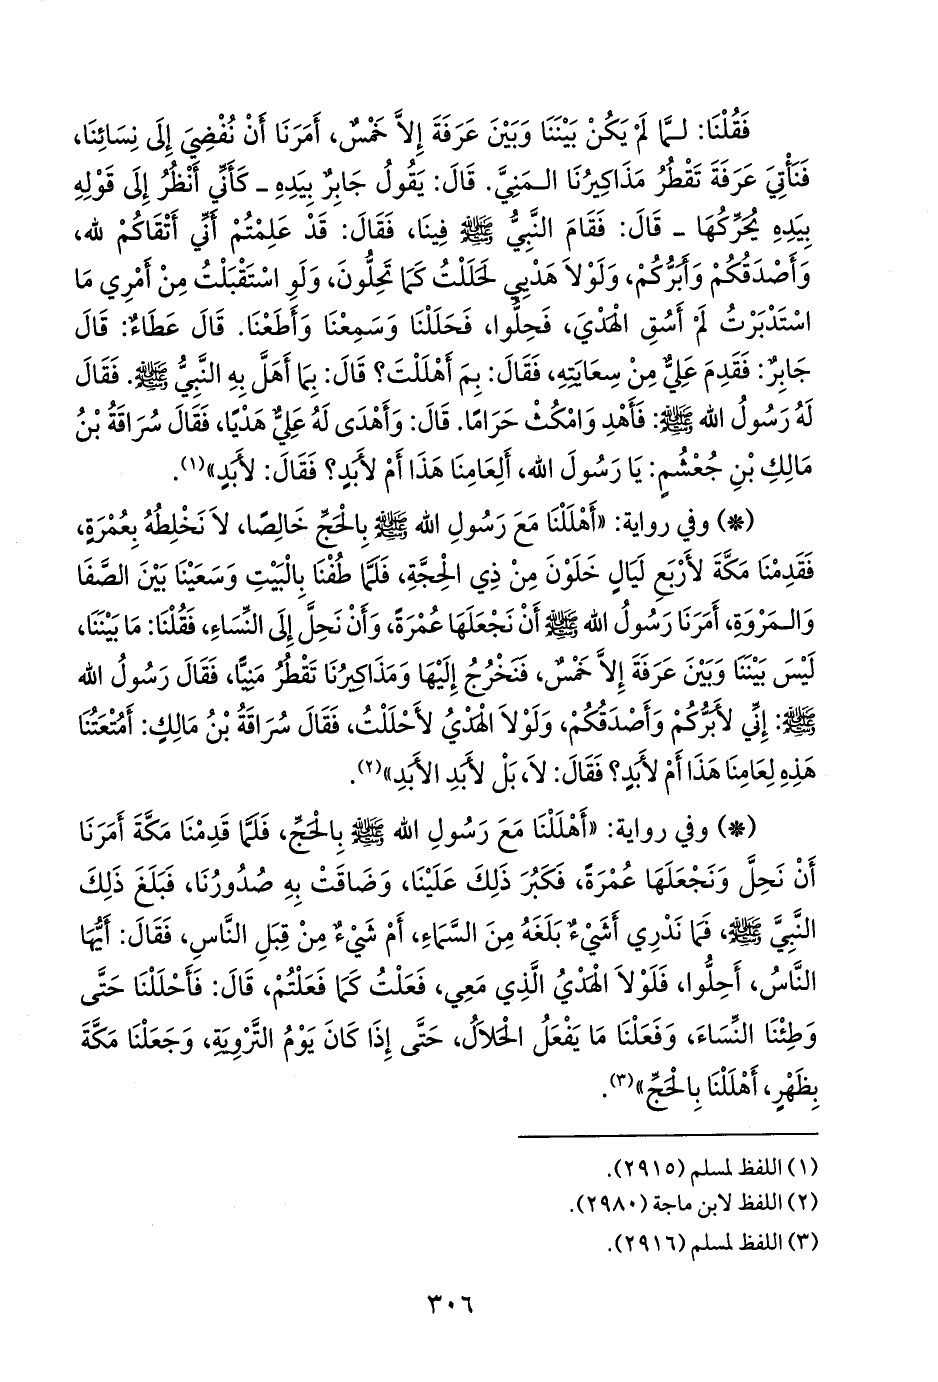 فَقُلْنَا: لَـمَّا لَمْ يَكُنْ بَيْنَنَا وَبَيْنَ عَرَفَةَ إِلاَّ خَمْسٌ، أَمَرَنَا أَنْ نُفْضِيَ إِلَى نِسَائِنَا،
فَنَأْتِيَ عَرَفَةَ تَقْطُرُ مَذَاكِيرُنَا الـمَنِيَّ. قَالَ: يَقُولُ جَابِرٌ بِيَدِهِ ـ كَأَنِّي أَنْظُرُ إِلَى قَوْلِهِ
بِيَدِهِ يُحَرِّكُهَا ـ قَالَ: فَقَامَ النَّبِيُّ ﷺ فِينَا، فَقَالَ: قَدْ عَلِمْتُمْ أَنِّي أَتْقَاكُمْ لله،
وَأَصْدَقُكُمْ وَأَبَرُّكُمْ، وَلَوْلاَ هَدْيِي لَحَلَلْتُ كَمَا تَحِلُّونَ، وَلَوِ اسْتَقْبَلْتُ مِنْ أَمْرِي مَا
اسْتَدْبَرْتُ لَمْ أَسُقِ الْهَدْيَ، فَحِلُّوا، فَحَلَلْنَا وَسَمِعْنَا وَأَطَعْنَا. قَالَ عَطَاءٌ: قَالَ
جَابِرٌ: فَقَدِمَ عَلِيٌّ مِنْ سِعَايَتِهِ، فَقَالَ: بِمَ أَهْلَلْتَ؟ قَالَ: بِمَا أَهَلَّ بِهِ النَّبِيُّ ﷺ. فَقَالَ
لَهُ رَسُولُ الله ﷺ: فَأَهْدِ وَامْكُثْ حَرَامًا. قَالَ: وَأَهْدَى لَهُ عَلِيٌّ هَدْيًا، فَقَالَ سُرَاقَةُ بْنُ
مَالِكِ بْنِ جُعْشُمٍ: يَا رَسُولَ الله، أَلِعَامِنَا هَذَا أَمْ لأَبَدٍ؟ فَقَالَ: لأَبَدٍ»(١).
(*) وفي رواية: «أَهْلَلْنَا مَعَ رَسُولِ الله ﷺ بِالْحَجِّ خَالِصًا، لاَ نَخْلِطُهُ بِعُمْرَةٍ،
فَقَدِمْنَا مَكَّةَ لأَرْبَعِ لَيَالٍ خَلَوْنَ مِنْ ذِي الْحِجَّةِ، فَلَمَّا طُفْنَا بِالْبَيْتِ وَسَعَيْنَا بَيْنَ الصَّفَا
وَالـمَرْوَةِ، أَمَرَنَا رَسُولُ الله ﷺ أَنْ نَجْعَلَهَا عُمْرَةً، وَأَنْ نَحِلَّ إِلَى النِّسَاءِ، فَقُلْنَا: مَا بَيْنَنَا،
لَيْسَ بَيْنَنَا وَبَيْنَ عَرَفَةَ إِلاَّ خَمْسٌ، فَنَخْرُجُ إِلَيْهَا وَمَذَاكِيرُنَا تَقْطُرُ مَنِيًّا، فَقَالَ رَسُولُ الله
ﷺ: إِنِّي لأَبَرُّكُمْ وَأَصْدَقُكُمْ، وَلَوْلاَ الْهَدْيُ لأَحْلَلْتُ، فَقَالَ سُرَاقَةُ بْنُ مَالِكٍ: أَمُتْعَتُنَا
هَذِهِ لِعَامِنَا هَذَا أَمْ لأَبَدٍ؟ فَقَالَ: لاَ، بَلْ لأَبَدِ الأَبَدِ»(٢).
(*) وفي رواية: «أَهْلَلْنَا مَعَ رَسُولِ الله ﷺ بِالْحَجِّ، فَلَمَّا قَدِمْنَا مَكَّةَ أَمَرَنَا
أَنْ نَحِلَّ وَنَجْعَلَهَا عُمْرَةً، فَكَبُرَ ذَلِكَ عَلَيْنَا، وَضَاقَتْ بِهِ صُدُورُنَا، فَبَلَغَ ذَلِكَ
النَّبِيَّ ﷺ، فَمَا نَدْرِي أَشَيْءٌ بَلَغَهُ مِنَ السَّمَاءِ، أَمْ شَيْءٌ مِنْ قِبَلِ النَّاسِ، فَقَالَ: أَيُّهَا
النَّاسُ، أَحِلُّوا، فَلَوْلاَ الْهَدْيُ الَّذِي مَعِي، فَعَلْتُ كَمَا فَعَلْتُمْ، قَالَ: فَأَحْلَلْنَا حَتَّى
وَطِئْنَا النِّسَاءَ، وَفَعَلْنَا مَا يَفْعَلُ الْحَلاَلُ، حَتَّى إِذَا كَانَ يَوْمُ التَّرْوِيَةِ، وَجَعَلْنَا مَكَّةَ
بِظَهْرٍ، أَهْلَلْنَا بِالْحَجِّ»(٣).
(١) اللفظ لمسلم (٢٩١٥).
(٢) اللفظ لابن ماجة (٢٩٨٠).
(٣) اللفظ لمسلم (٢٩١٦).
٣٠٦